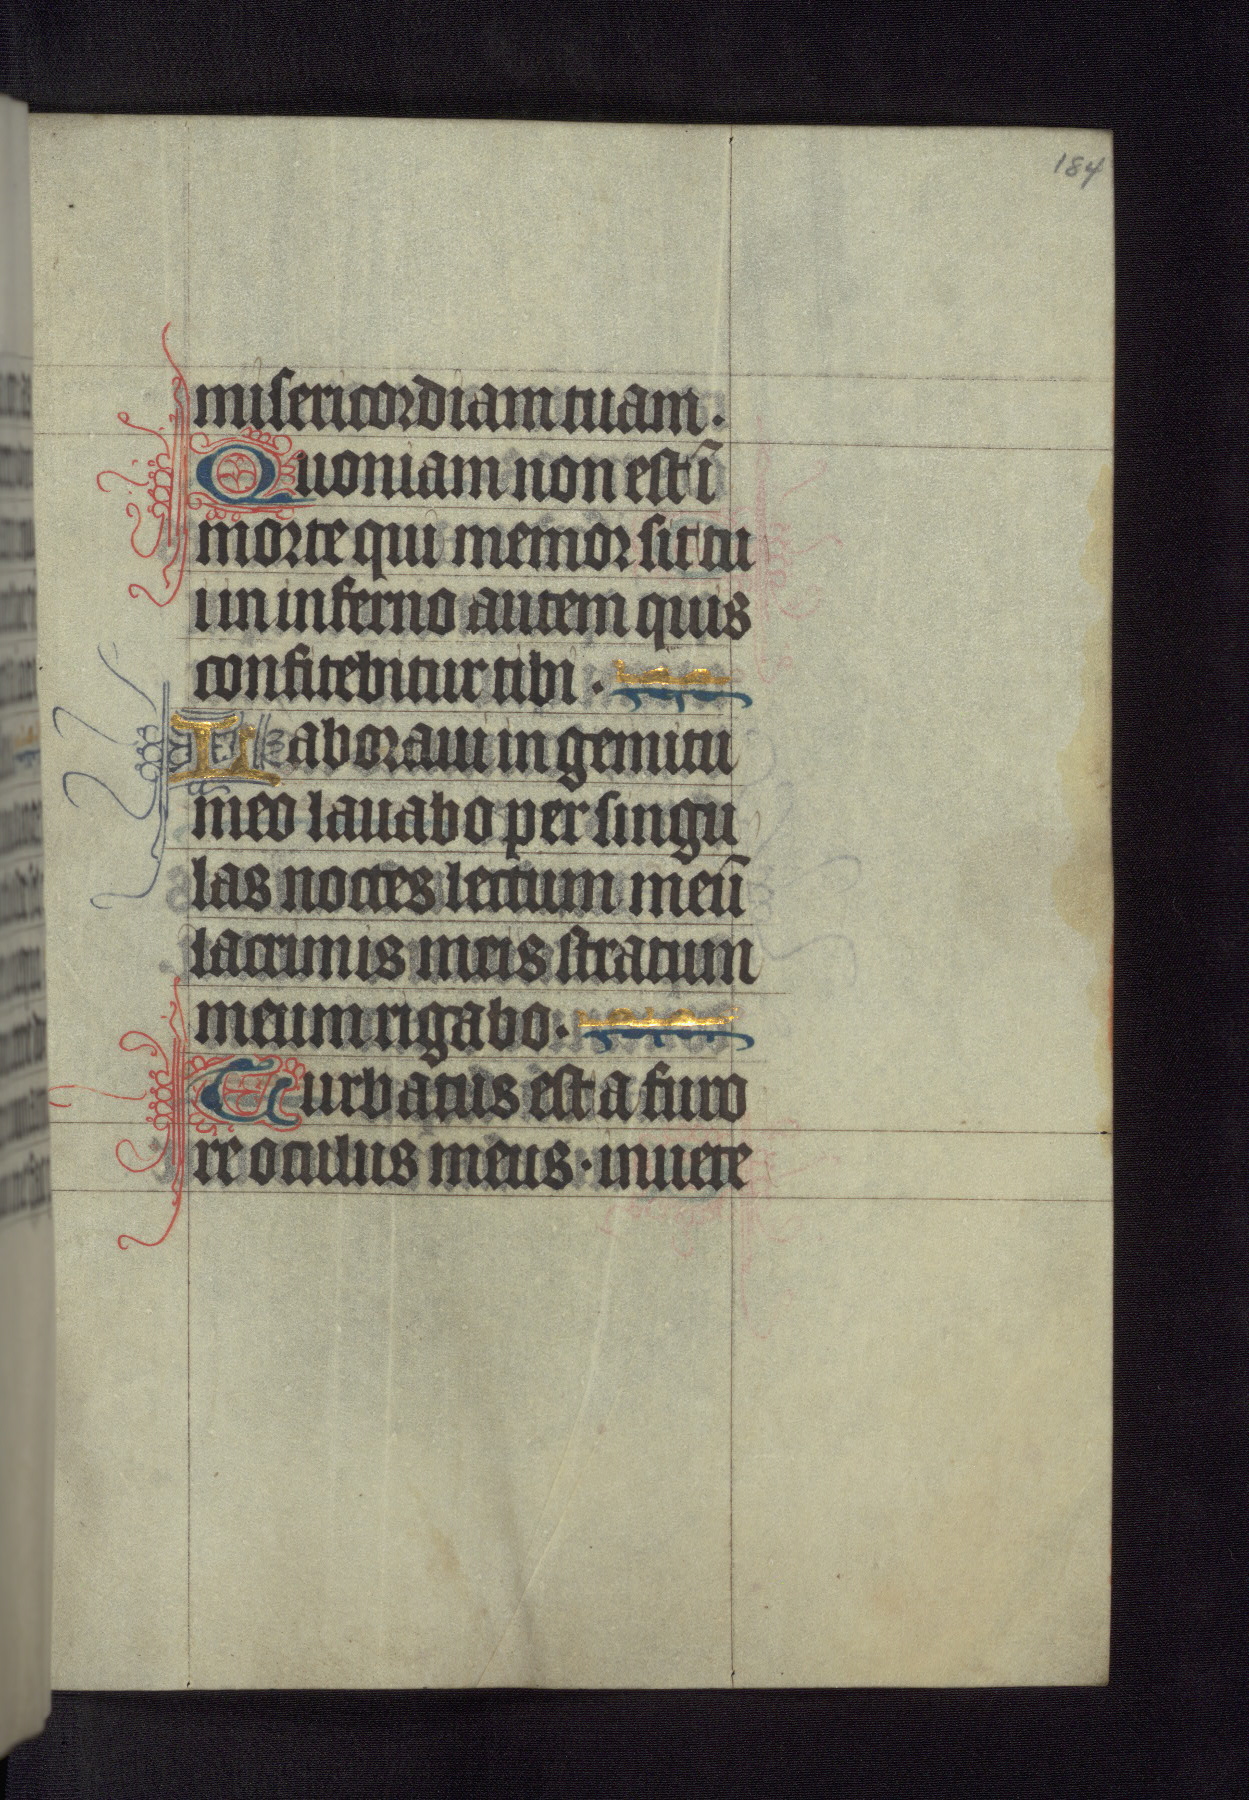 184
misericordiam tuam.
Quoniam non est ī
morte qui memor sit tu
i in inferno autem quis
confitebitur tibi.
Laboraui in gemitu
meo lauabo per singu
las noctes lectum meū
lacrimis meis stratum
meum rigabo.
Turbatus est a furo
re oculus meus · inuete